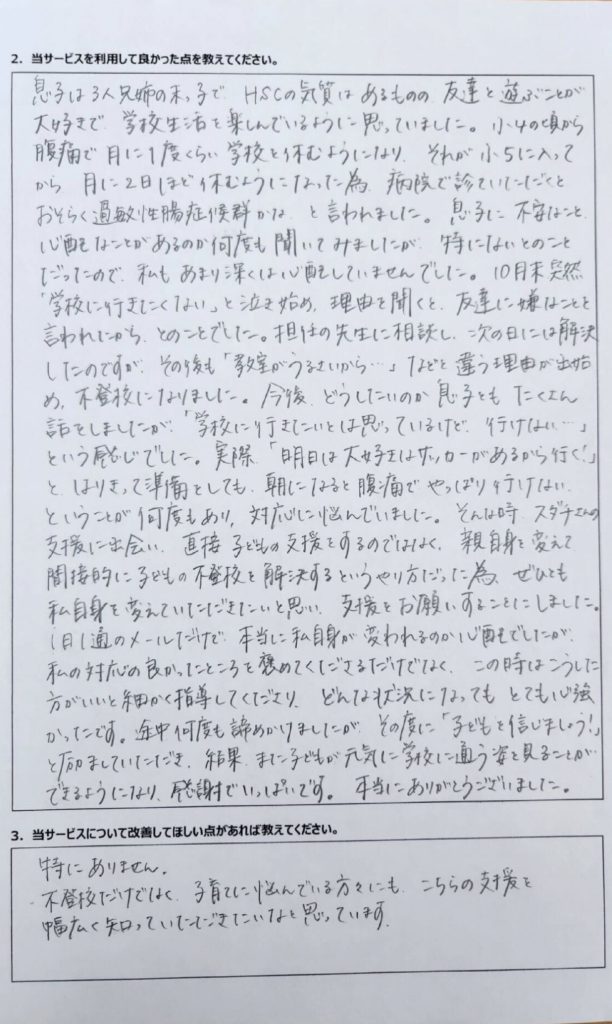 2．当サービスを利用して良かった点を教えてください。
息子は3人兄姉の末っ子で、HSCの気質はあるものの友達と遊ぶことが
大好きで、学校生活を楽しんでいるように思っていました。小4の頃から
腹痛で月に1度くらい学校を休むようになり、それが小5に入って
から月に2日ほど休むようになった為、病院で診ていただくと
おそらく過敏性腸症候群かな、と言われました。息子に不安なこと、
心配なことがあるのか何度も聞いてみましたが、特にないとのこと
だったので、私もあまり深くは心配していませんでした。10月末突然
「学校に行きたくない」と泣き始め、理由を聞くと、友達に嫌なことを
言われたから、とのことでした。担任の先生に相談し、次の日には解決
したのですが、その後も「教室がうるさいから…」などと違う理由が出始
め、不登校になりました。今後、どうしたいのか息子ともたくさん
話をしましたが、「学校に行きたいとは思っているけど、行けない…」
という感じでした。実際、「明日は大好きなサッカーがあるから行く！」
と、はりきって準備をしても、朝になると腹痛でやっぱり行けない、
ということが何度もあり、対応に悩んでいました。そんな時、スダチさんの
支援に出会い、直接子どもの支援をするのではなく、親自身を変えて
間接的に子どもの不登校を解決するというやり方だった為、ぜひとも
私自身を変えていただきたいと思い、支援をお願いすることにしました。
1日1通のメールだけで、本当に私自身が変われるのか心配でしたが、
私の対応の良かったところを褒めてくださるだけでなく、この時はこうした
方がいいと細かく指導してくださり、どんな状況になってもとても心強
かったです。途中何度も諦めかけましたが、その度に「子どもを信じましょう！」
と励ましていただき、結果、また子どもが元気に学校に通う姿を見ることが
できるようになり、感謝でいっぱいです。本当にありがとうございました。
3．当サービスについて改善してほしい点があれば教えてください。
特にありません。
不登校だけではなく、子育てに悩んでいる方々にも、こちらの支援を
幅広く知っていただきたいなと思っています。